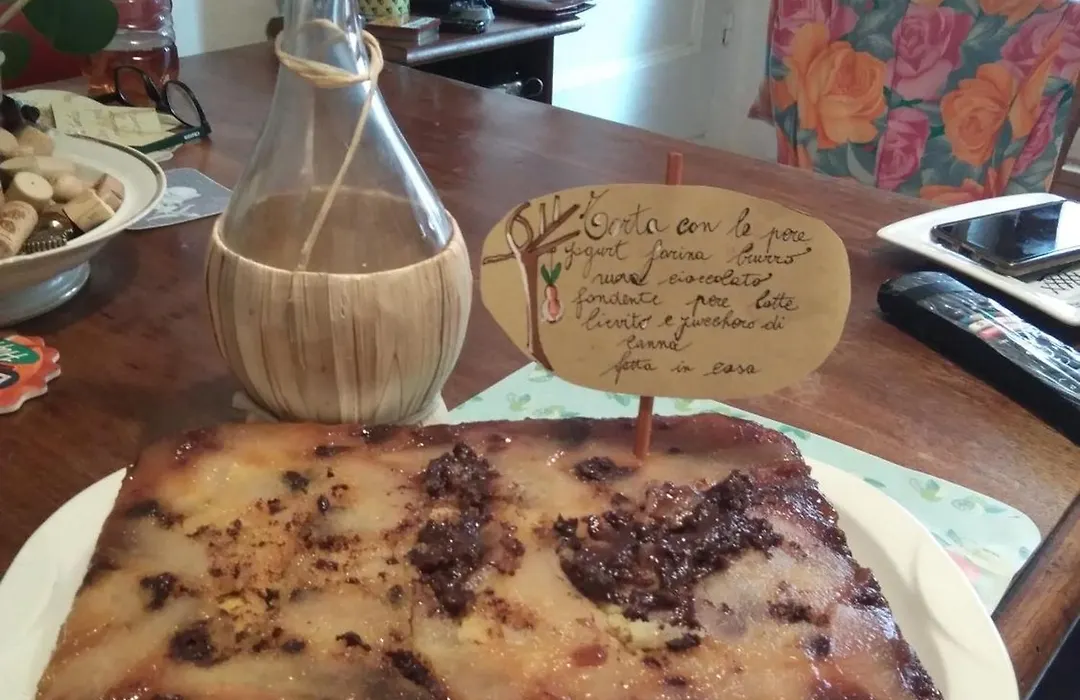 Torta con le pere
yogurt farina burro
uova cioccolato
fondente pere latte
lievito e zucchero di
canna
fatta in casa